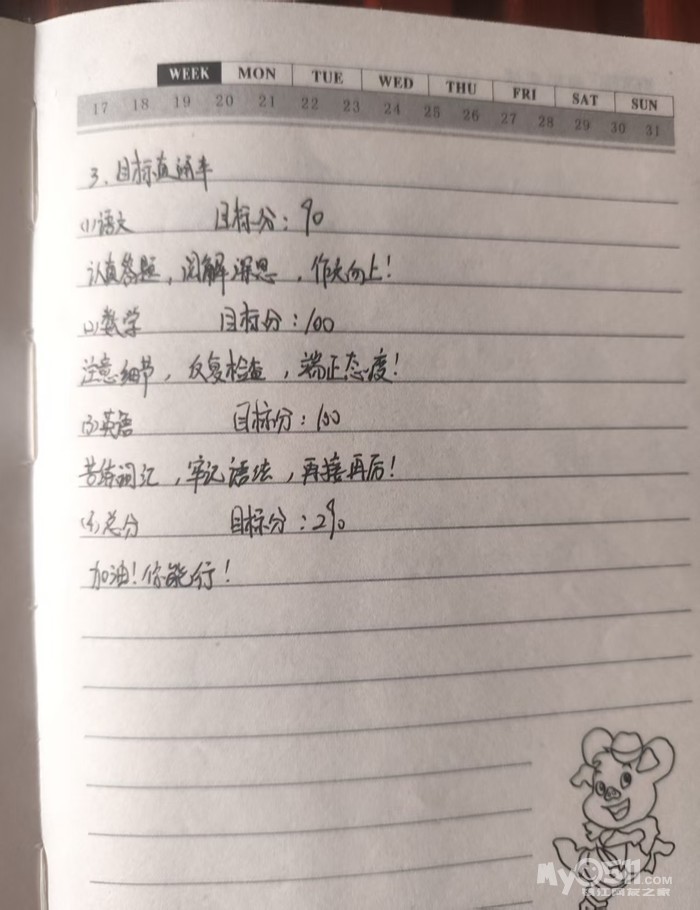 WEEK MON TUE WED THU FRI SAT SUN
17 18 19 20 21 22 23 24 25 26 27 28 29 30 31
3、目标直通车
(1)语文 目标分：90
认真答题，阅解深思，作文向上！
(2)数学 目标分：100
注意细节，反复检查，端正态度！
(3)英语 目标分：100
苦练词汇，牢记语法，再接再厉！
(4)总分 目标分：290
加油！你能行！
My0511.COM